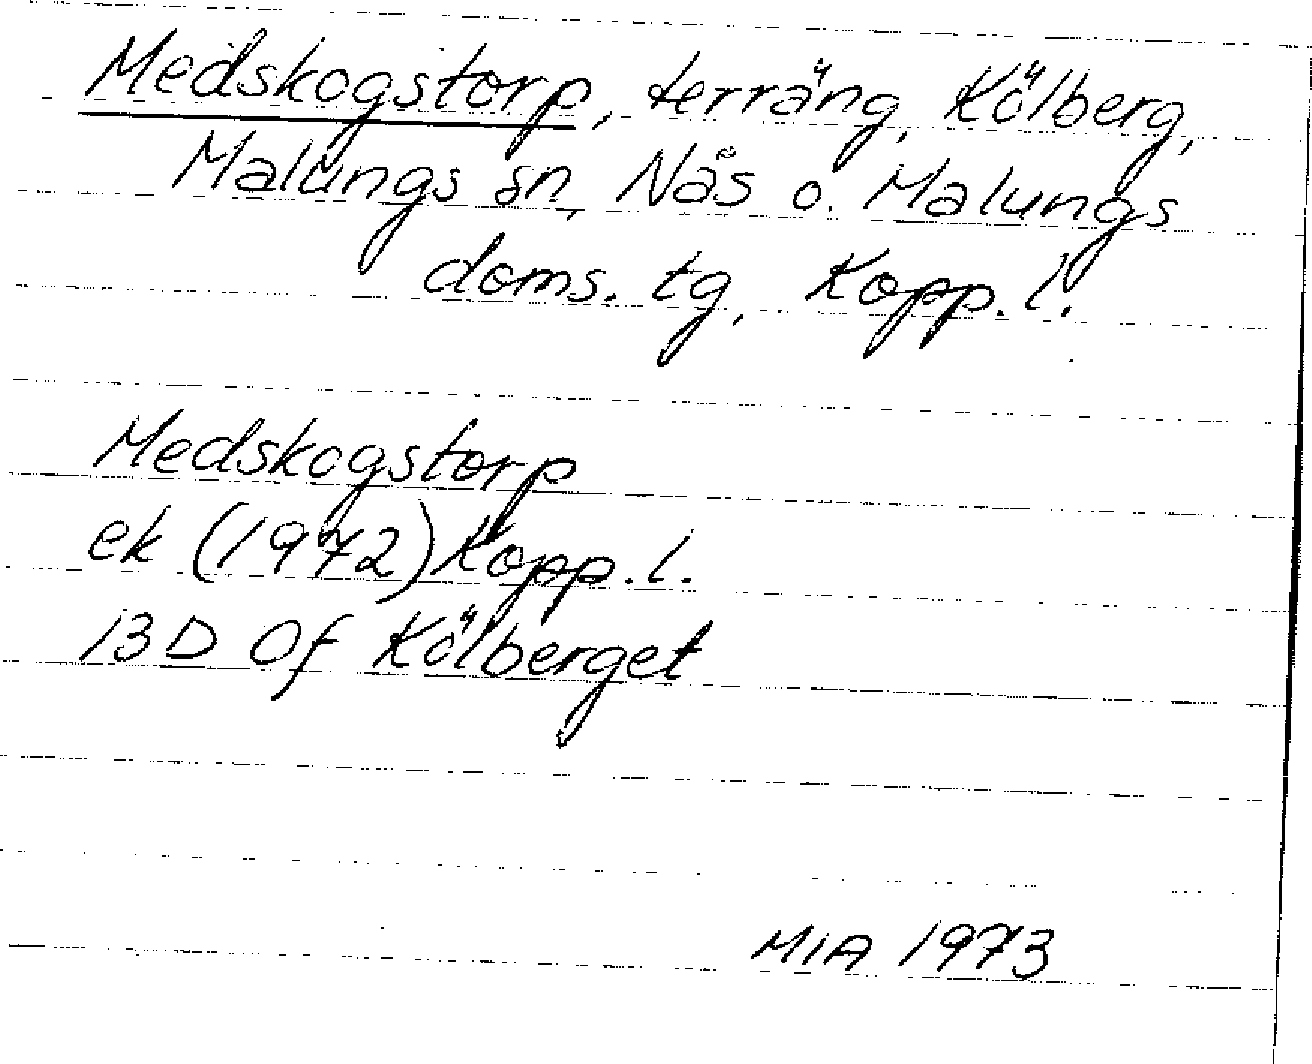 Medskogstorp, terräng, Kölberg,
Malungs sn, Nås o. Malungs
doms. tg, Kopp. l.
Medskogstorp
ek (1972) Kopp. l.
13D 0f Kölberget
MIA 1973